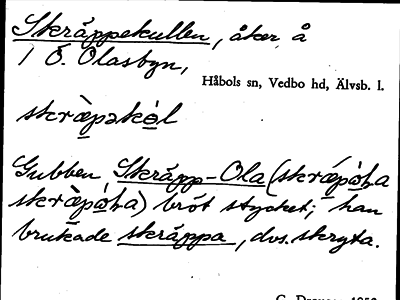 Skräppekullen, åker å
1 Ö. Olasbyn,
Håbols sn, Vedbo hd, Älvsb. l.
skræ̀pəkel
Gubben Skräpp-Ola (skræ̀póɫa
skræ̀póɫa) bröt stycket; han
brukade skräppa, dvs. skryta.